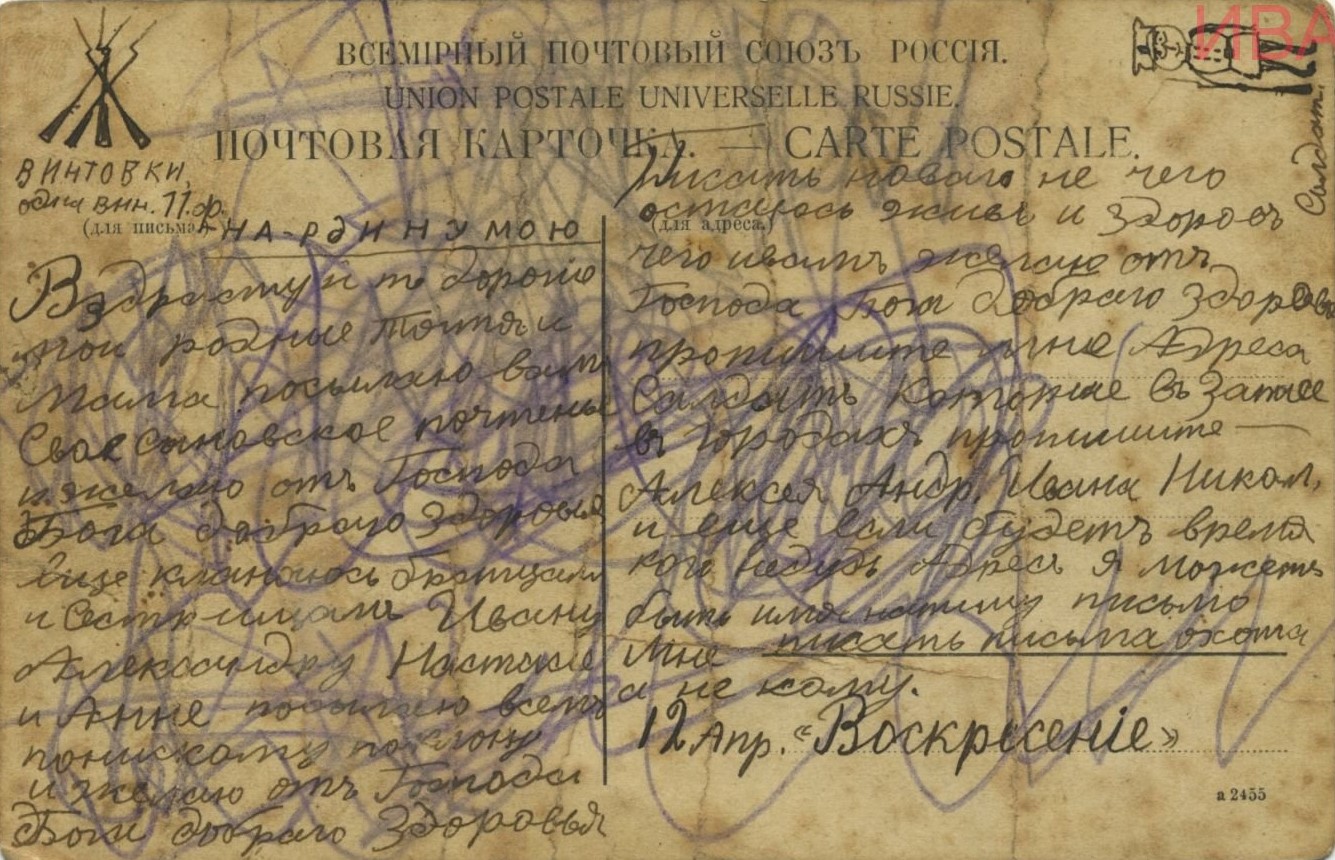 ВСЕМІРНЫЙ ПОЧТОВЫЙ СОЮЗЪ РОССІЯ.
UNION POSTALE UNIVERSELLE RUSSIE.
ПОЧТОВАЯ КАРТОЧКА. — CARTE POSTALE.
ИВА
Солдат.
ВИНТОВКИ,
одна вин. 11.ф.
(для письма)
НА-РОДИНУ МОЮ
Вздраствуйте дорогіе
мои родные тятя и
Мама посылаю вамъ
Свое сыновское почтенье
и желаю отъ Господа
Бога добраго здоровья
еще кланяюсь братцамъ
и Сестрицамъ Ивану
Александру Настасіе
и Анне посылаю всемъ
понискому поклону
и желаю отъ Господа
Бога добраго Здоровья
(для адреса.)
Писать новаго не чего
остаюсь живъ и здоровъ
чего и вамъ желаю отъ
Господа Бога добраго здоровья
пропишите мне Адреса
Салдатъ Которые въ Запасе
въ городахъ пропишите —
Алексея Андр. Ивана Никол.
и еще если будетъ время
кого нибудь Адресъ я можетъ
быть имъ напишу письмо
Мне писать письма охота
а не кому.
12 Апр. «Воскресеніе»
а 2455